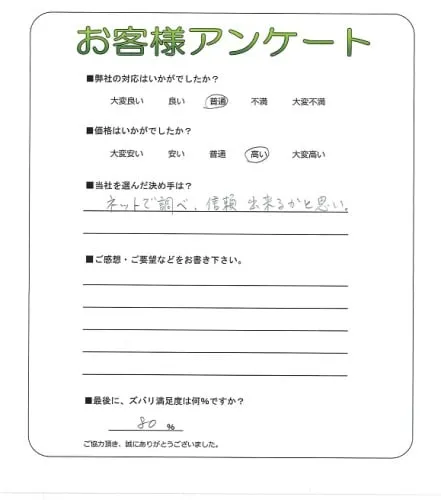 お客様アンケート
■弊社の対応はいかがでしたか？
大変良い 良い 普通 不満 大変不満
■価格はいかがでしたか？
大変安い 安い 普通 高い 大変高い
■当社を選んだ決め手は？
ネットで調べ、信頼 出来るかと思い。
■ご感想・ご要望などをお書き下さい。
■最後に、ズバリ満足度は何％ですか？
80 %
ご協力頂き、誠にありがとうございました。